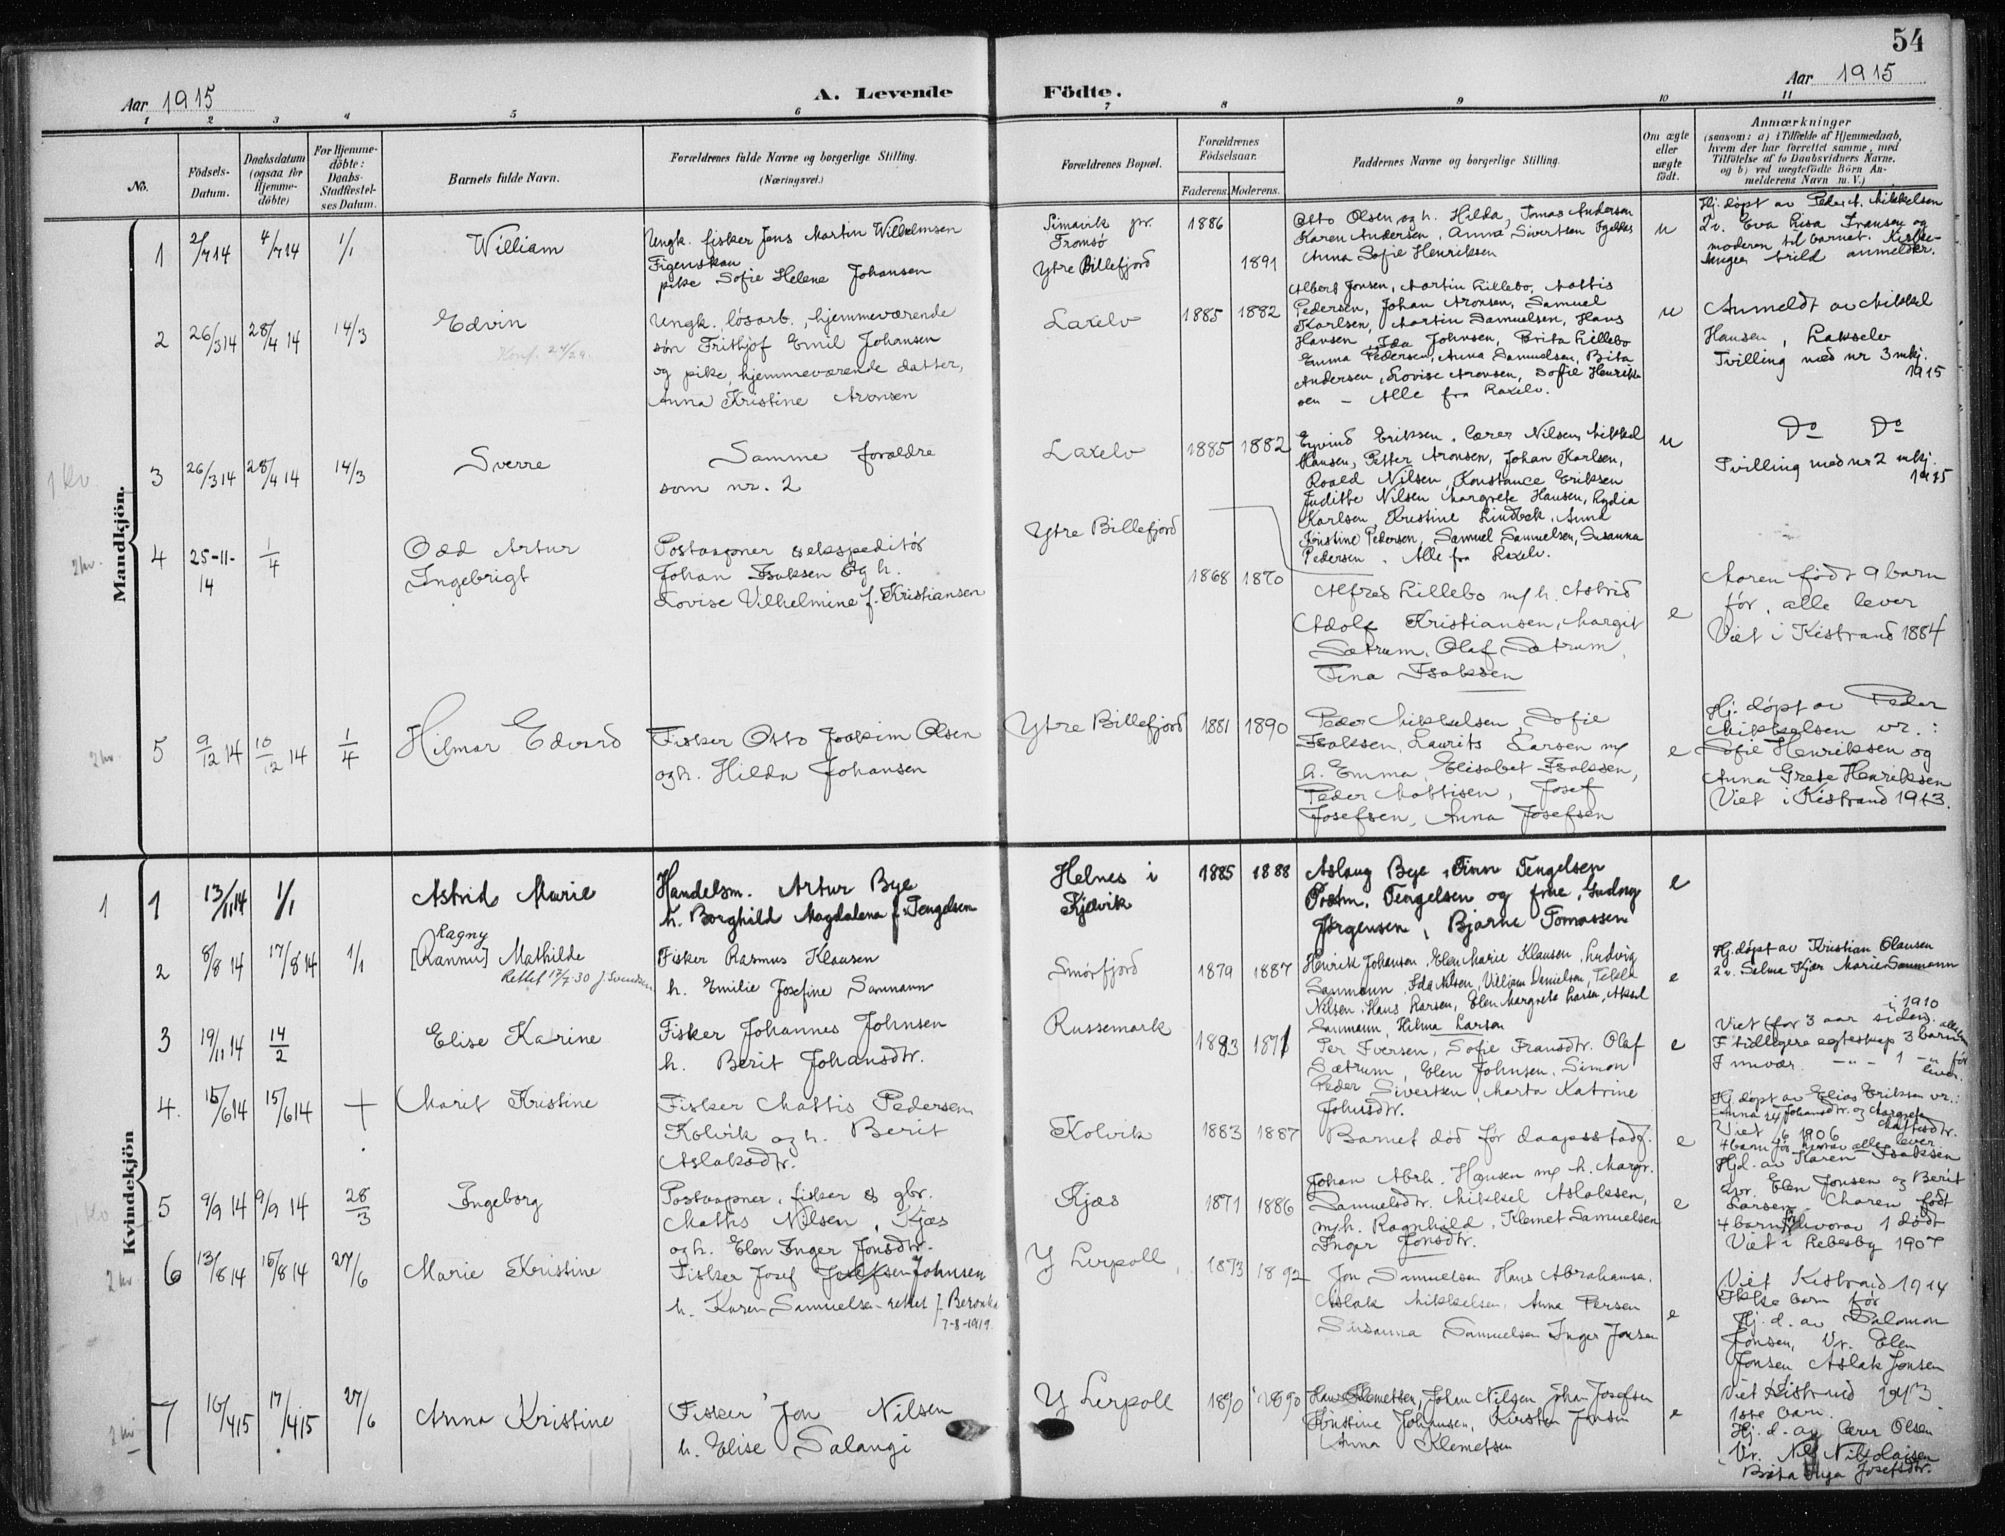 54
Aar 1915
A. Levende
Födte.
Aar 1915
1 2 3 4 5 6 7 8 9 10 11
No.
Födsels-
Datum.
Daabsdatum
(ogsaa for
Hjemme-
döbte)
For Hjemme-
döbte:
Daabs-
Stadfæstel-
ses Datum.
Barnets fulde Navn.
Forældrenes fulde Navne og borgerlige Stilling.
(Næringsvei.)
Forældrenes Bopæl.
Forældrenes
Födselsaar.
Faderens. Moderens.
Faddernes Navne og borgerlige Stilling.
Om ægte
eller
uægte
födt.
Anmærkninger
(saasom: a) i Tilfælde af Hjemmedaab,
hvem der har forrettet samme, med
Tilföielse af to Daabsvidners Navne,
og b) ved uægtefödte Börn An-
melderens Navn m. V.)
Mandkjön.
1
4/7 14
1/1
William
Ungk. fisker Jens Martin Wilhelmsen
pike Sofie Helene Johansen
Tromsö
Ytre Billefjord
1886
1891
Otto Olsen og h. Hilda, Tomas Andersen
Karen Andersen, Anna Sivertsen
Anna Sofie Henriksen
u
Hj. döpt av Peder A. Mikkelsen
2 v. Eva Lisa Fransen og
moderen til barnet.
2
26/3 14
28/4 14
14/3
Edvin
Konf. 24/29.
Ungk. lösarb., hjemmeværende
sön Frithjof Emil Johansen
og pike, hjemmeværende datter,
Anna Kristine Aronsen
Laxelv
1885
1882
Albert Jonsen, Martin Lillebo, Mattis
Pedersen, Johan Aronsen, Samuel
Karlsen, Martin Samuelsen, Hans
Hansen, Ida Johnsen, Brita Lillebo
Emma Pedersen, Anna Samuelsen, Brita
Andersen, Lovise Aronsen, Sofie Henrik-
sen - Alle fra Laxelv.
u
Anmeldt av Mikkel
Hansen, Lakselv
Tvilling med nr 3 mkj.
1915
1 kv.
3
26/3 14
28/4 14
14/3
Sverre
Samme forældre
som nr. 2
Laxelv
1885
1882
Eyvind Eriksen, Nilsen, Mikkel
Hansen, Petter Aronsen, Johan Karlsen,
Roald Nilsen, Konstance Eriksen
Judithe Nilsen Margrete Hansen, Lydia
Karlsen, Kristine Lindbek, Anna
Kristine Pedersen, Samuel Samuelsen, Susanna
Pedersen. Alle fra Laxelv.
u
Do Do
Tvilling med nr 2 mkj.
1915
2 kv.
4
25-11-
14
1/4
Odd Artur
Ingebrigt
Postaapner & ekspeditör
Johan Isaksen og h.
Lovise Vilhelmine f. Kristiansen
Ytre Billefjord
1868
1870
Alfred Lillebo m/ h. Astrid
Adolf Kristiansen, Margit
Sætrum, Olaf Sætrum,
Tina Isaksen
e
Moren födt 9 barn
för, alle lever
Viet i Kistrand 1884
2 kv.
5
9/12 14
10/12 14
1/4
Hilmar Edvard
Fisker Otto Joakim Olsen
og h. Hilda Johansen
Ytre Billefjord
1881
1890
Peder Mikkelsen, Sofie
Isaksen, Laurits Larsen m/
h. Emma, Elisabet Isaksen,
Peder Mattisen, Josef
Josefsen, Anna Josefsen
e
Hj. döpt av Peder
Mikkelsen vr.:
Sofie Henriksen og
Anna Grete Henriksen
Viet i Kistrand 1913.
Kvindekjön
1
1
13/11 14
1/1
Astrid Marie
Handelsm. Artur Bye
h. Borghild Magdalena f. Tengelsen
Helnes i
Kjelvik
1885
1888
Aslaug Bye, Finn Tengelsen
Postm. Tengelsen og frue, Gudrog
Jörgensen, Bjarne Tomassen
e
2
8/8 14
17/8 14
1/1
Ragny
[Rannu] Mathilde
Rettet 17/7 30 J. Svendsen
Fisker Rasmus Klausen
h. Emilie Josefine Sanmann
Smörfjord
1879
1887
Henrik Johansen, Elen Marie Klausen, Ludvig
Sanmann, Ida Nilsen, Villiam Danielsen,
Nilsen, Hans Larsen, Elen Margrete Larsen, Aksel
Sanmann, Hilma Larsen
e
Hj. döpt av Kristian Olausen
2 v. Selma Kjær Marie Sanmann
3
19/11 14
14/2
Elise Karine
Fisker Johannes Johnsen
h. Berit Johansdtr.
Russemark
1883
1871
Per Iversen, Sofie Fransdtr. Olaf
Sætrum, Elen Johnsen, Simon
Peder Sivertsen, Marta Katrine
Johnsdtr.
e
i 1910
Viet (for 3 aar siden)
I tidligere egteskap 3 barn
I nuvær. -"- 1 -"- för
lever.
4.
15/6 14
15/6 14
+
Marit Kristine
Fisker Mattis Pedersen
Kolvik og h. Berit
Aslaksdtr.
Kolvik
1883
1887
Barnet död för daapsstadf.
e
Hj. döpt av Elias Eriksen vr.:
Anna Johansdtr. og Margrete
Mattisdtr.
Viet 24/6 1906
4 barn för, hvorav alle lever
5
9/9 14
9/9 14
28/3
Ingeborg
Postaapner, fisker & gbr.
Mathis Nilsen, Kjæs
og h. Elen Inger Jonsdtr.
Kjæs
1871
1886
Johan Abrh. Hansen m/ h. Margr.
Samuelsdtr. Mikkel Aslaksen,
m/h. Ragnhild, Klemet Samuelsen
Inger Jonsdtr.
e
Hjd. av Karen Isaksen
vr. Elen Jonsen og Berit
Larsen. Moren födt
4 barn för hvorav 1 dödt
Viet i Lebesby 1907
2 kv.
6
13/8 14
15/8 14
27/6
Marie Kristine
Fisker Josef Josefsen Johnsen
h. Karen Samuelsen rettet f. Beronka
7-8-1919.
Y Lerpoll
1873
1892
Jon Samuelsen Hans Abrahamsen.
Aslak Mikkelsen, Anna Persen
Susanna Samuelsen Inger Jonsen
e
Viet Kistrand 1914
Ikke barn för
Hj. d. av Salomon
Jonsen, Vr. Elen
Jonsen Aslak Jonsen
2 kv.
7
16/4 15
17/4 15
27/6
Anna Kristine
Fisker Jon Nilsen
h. Elise Salangi
Y Lerpoll
1890
1890
Hans Klemetsen, Johan Nilsen Johan Josefsen
Kristine Johansen, Kirsten Jonsen
Anna Klemetsen
e
Viet Kistrand 1913.
1ste barn.
Hj. d. av Olsen
Vr. Nils Nikolaisen
Brita Inga Josefsdtr.